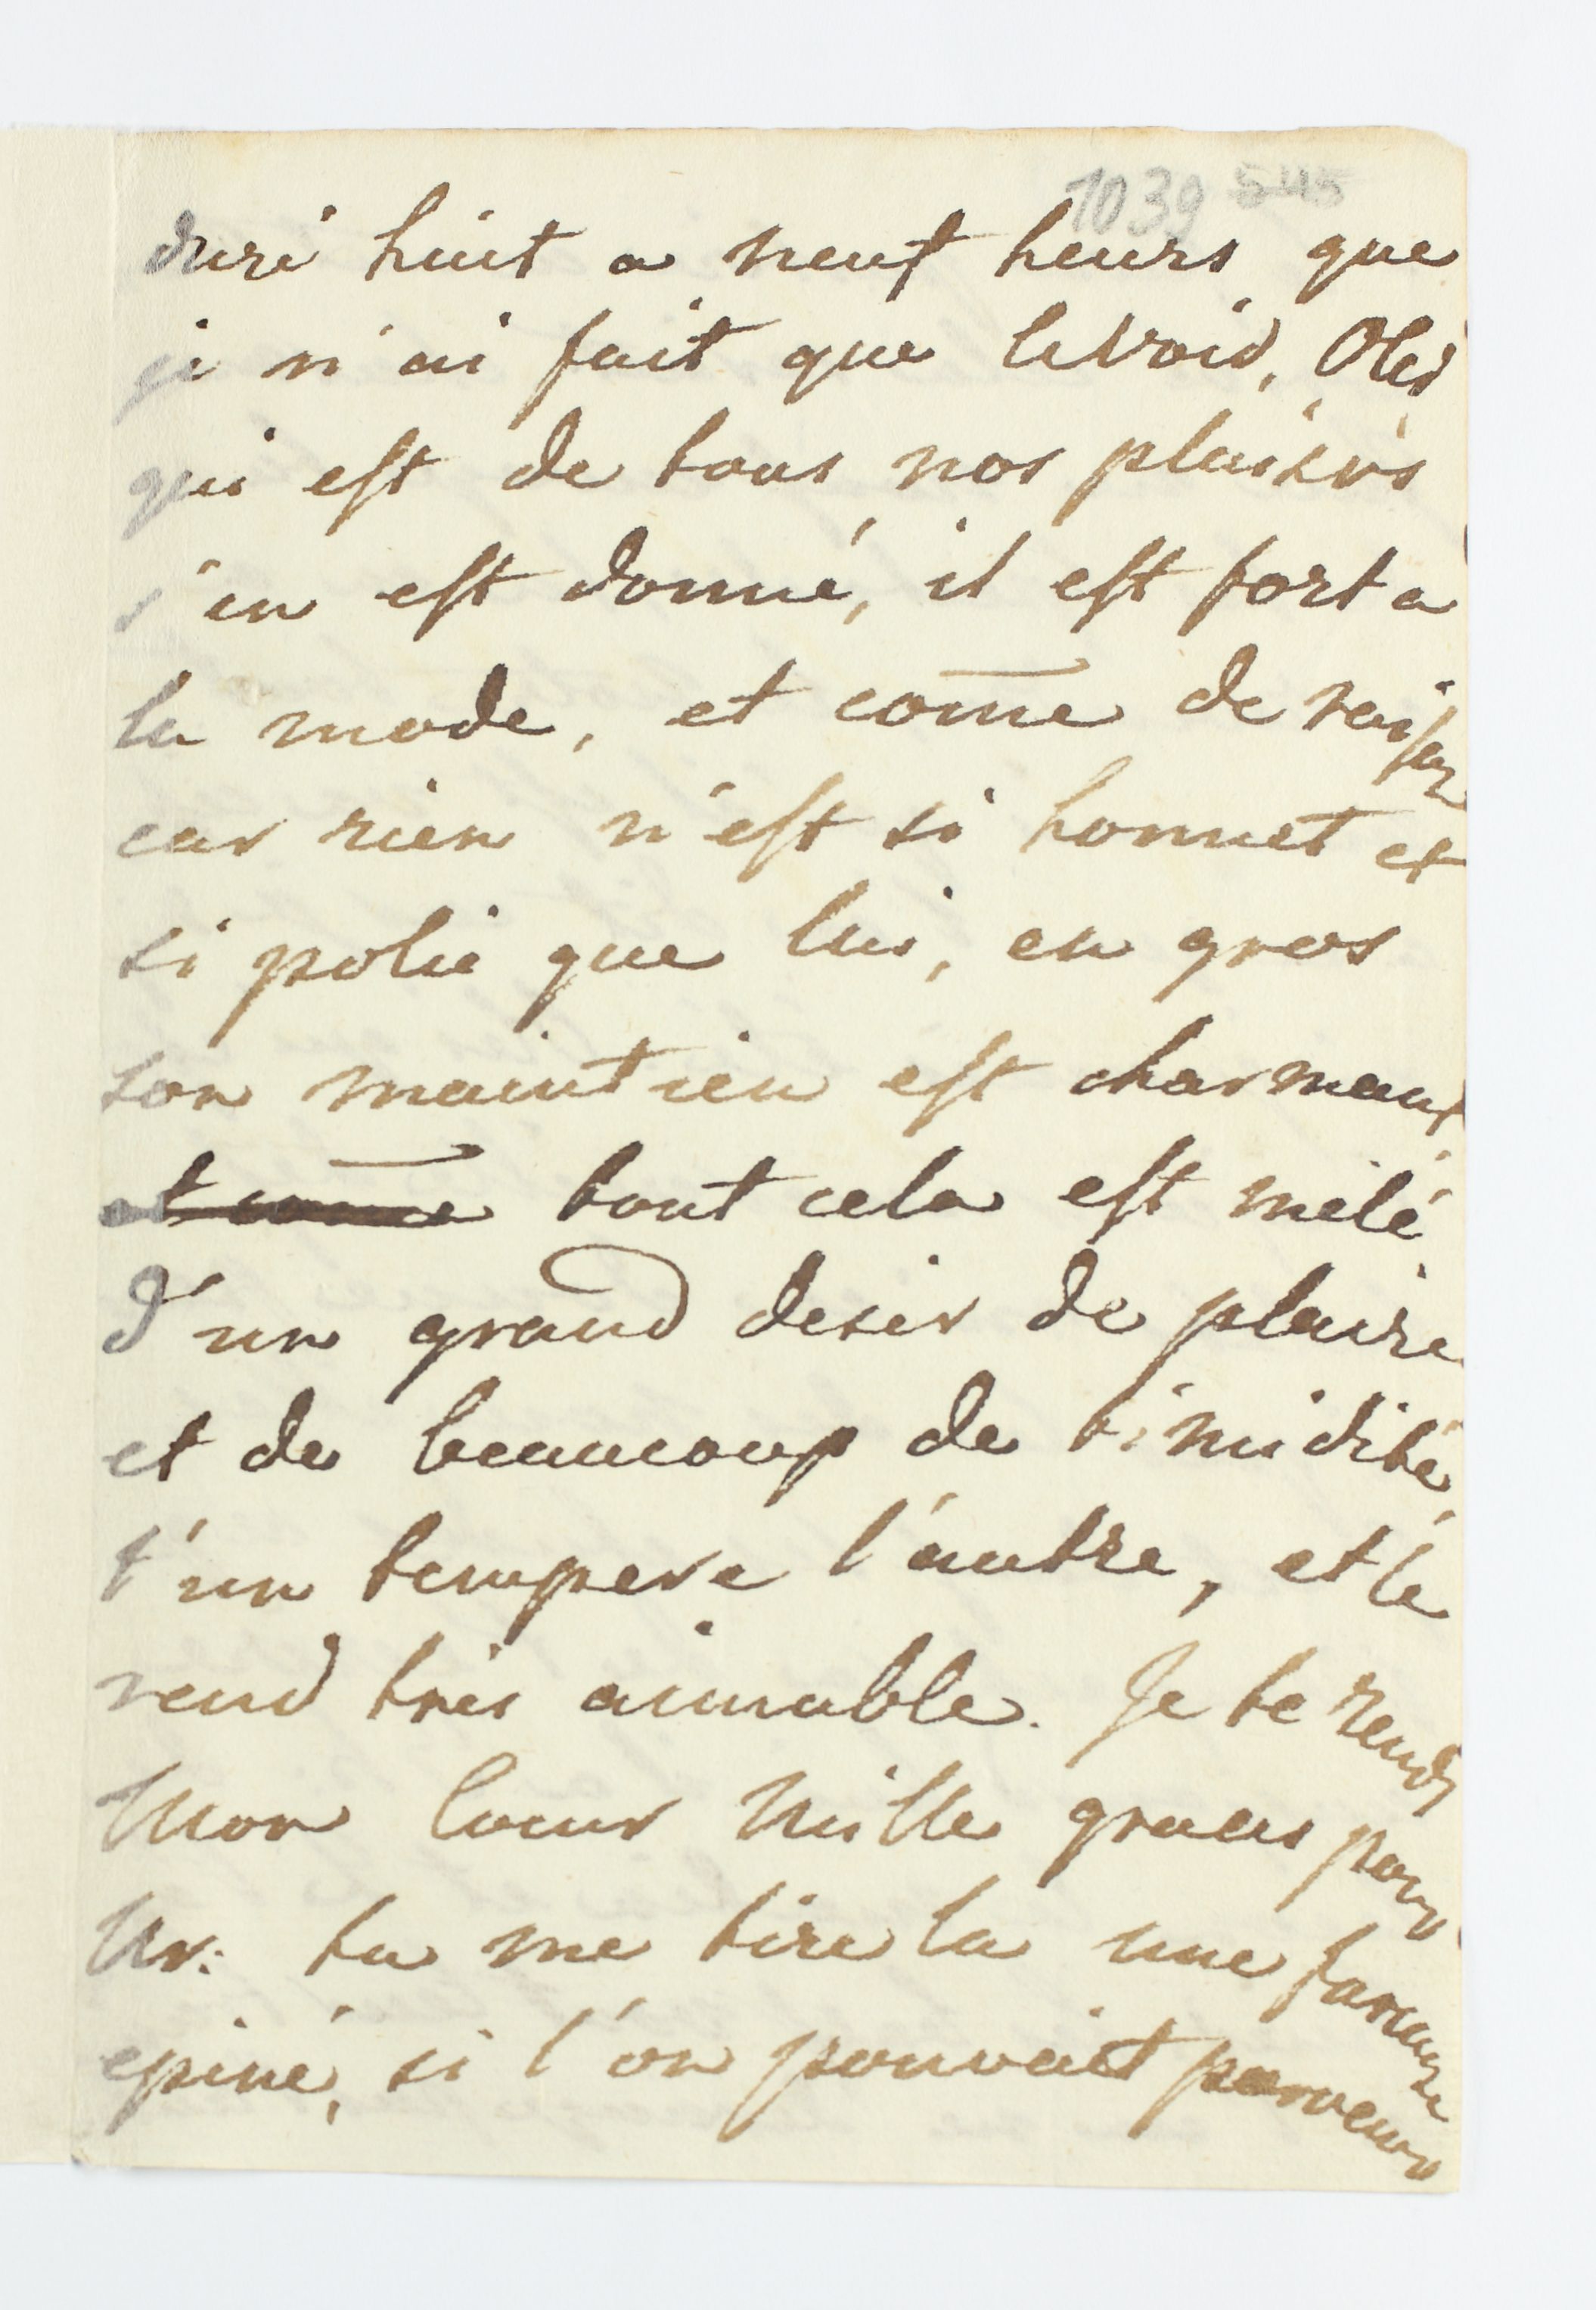 1039 545
duré huit a neuf heurs que
je n'ai fait que levoir, Oled
qui est de tous nos plaisirs
s'en est donné, il est fort a
la mode, et come de raison
car rien n'est si honnet et
si polie que lui, en gros
son maintien est charmant,
et come tout cela est mélé
d'un grand desir de plaire
et de beaucoup de timidité,
l'un tempere l'autre, et le
rend très aimable. Je te rends
Mon Coeur Mille graces pour
Mr: tu me tire la une fameuse
epine, si l'on pouvait parvenir